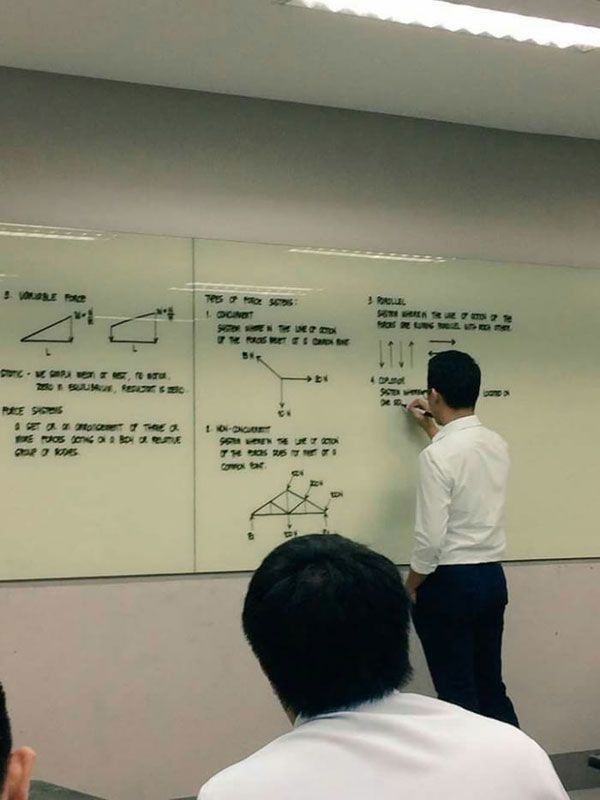 3. VARIABLE FORCE
L
L
STATIC - WE SIMPLY MEAN AT REST, NO MOTION,
ZERO IN EQUILIBRIUM, RESULTANT IS ZERO.
FORCE SYSTEMS
A SET OR AN ARRANGEMENT OF THREE OR
MORE FORCES ACTING ON A BODY OR RELATIVE
GROUP OF BODIES.
TYPES OF FORCE SYSTEMS:
1. CONCURRENT
SYSTEM WHERE IN THE LINE OF ACTION
OF THE FORCES MEET AT A COMMON POINT
20 N
10 N
2. NON-CONCURRENT
SYSTEM WHEREIN THE LINE OF ACTION
OF THE FORCES DOES NOT MEET AT A
COMMON POINT.
3. PARALLEL
SYSTEM WHEREIN THE LINE OF ACTION OF THE
FORCES ARE RUNNING PARALLEL WITH EACH OTHER.
4. COPLANAR
SYSTEM LOCATED ON
ONE